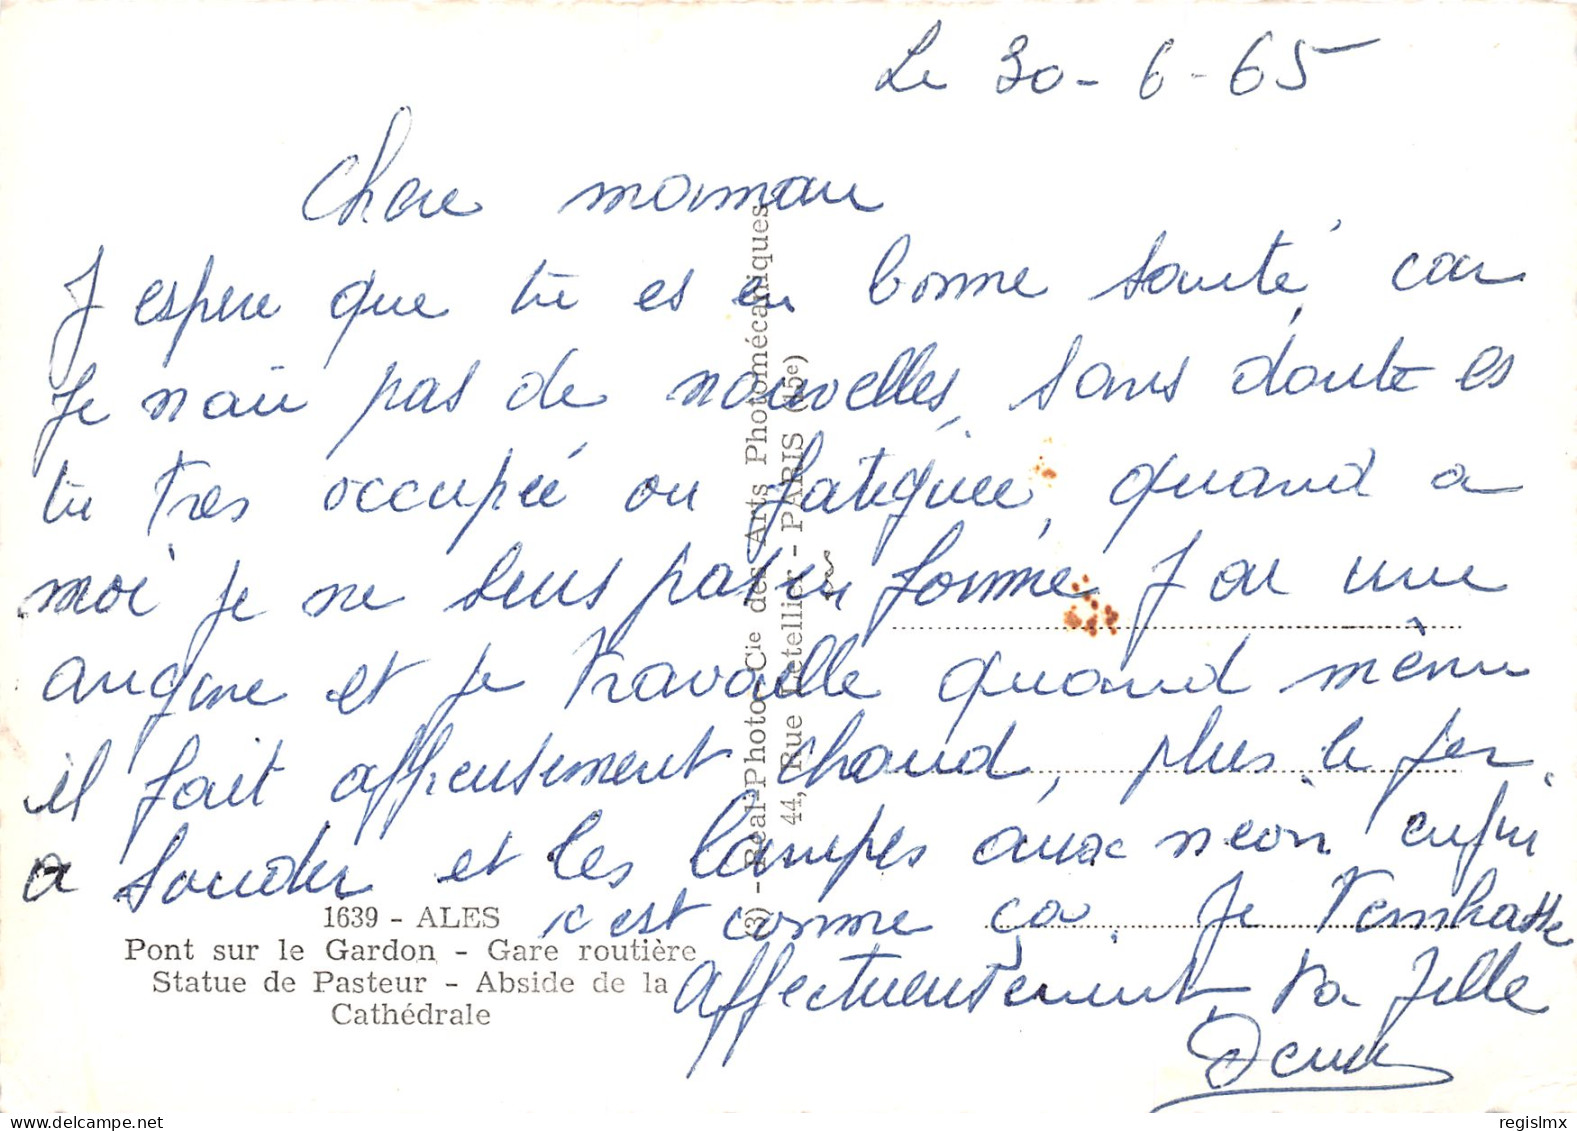 Le 30-6-65
Chere maman
J espere que tu es en bonne santé, car
Je n'ai pas de nouvelles, sans doute es
tu tres occupée ou fatiguée, quand a
moi je ne suis pas en forme J'ai une
angine et je travaille quand même
il fait affreusement chaud, plus le fer
a souder et les lampes aux néon enfin
c'est comme ça. Je t'embrasse
affectueusement, ta fille
1639 - ALES
Pont sur le Gardon - Gare routière
Statue de Pasteur - Abside de la
Cathédrale
(3) - Réal-Photo-Cie des Arts Photomécaniques
44, Rue Letellier - PARIS (15e)
regislmx